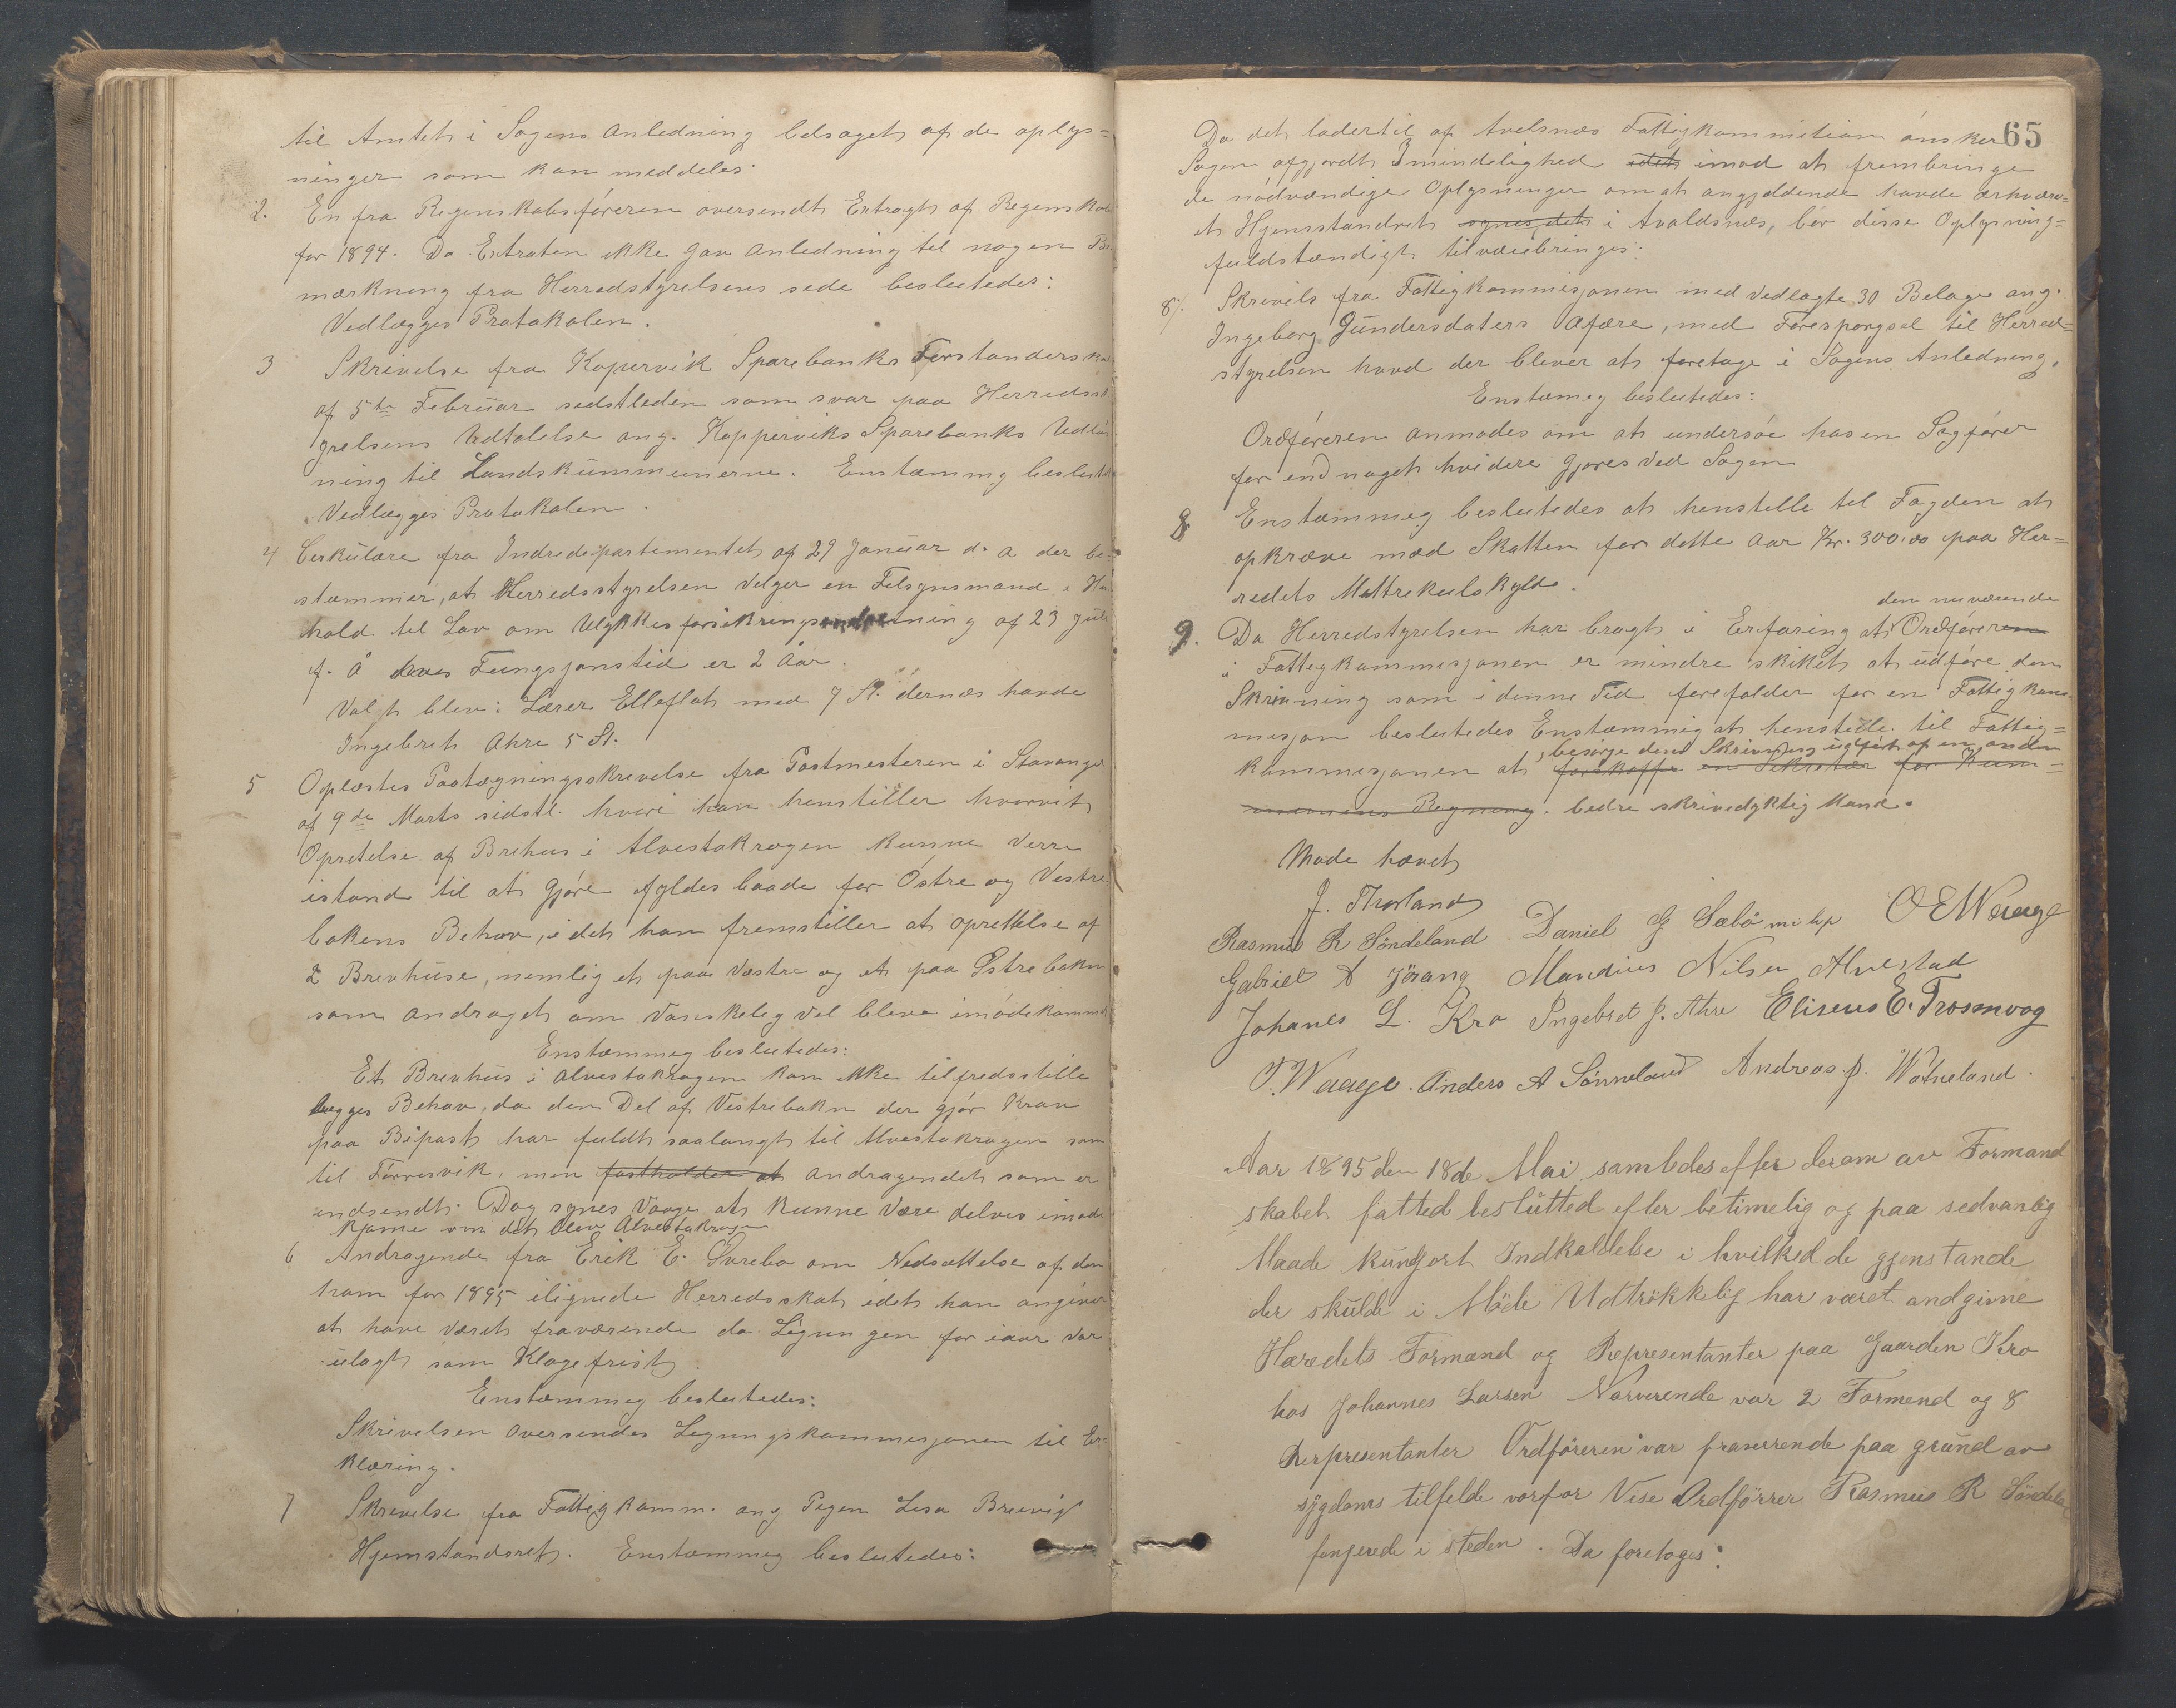 til Amtet i Sagens Anledning ledsaget af de oplys=
ninger som kan meddeles.
2. En fra Regenskabsføreren oversendt Extragt af Regenskab
for 1894. Da Extraten ikke gav anledning til nogen Be
mærkning fra Herredstyrelsens side besluttedes:
Vedlægges Protokolen.
3 Skrivelse fra Kopervik Sparebanks Forstanderska
af 5te Februar sidstleden som svar paa Herredsst
yrelsens Udtalelse ang. Kopperviks Sparebanks Udlaa
ning til Landskummunerne. Enstæmmig beslutte
Vedlægges Protokolen.
4 Cirkulære fra Indredepartementet af 29 Januar d. a der be
stemmer, at Herredsstyrelsen velger en Tilsynsmand i Hen
hold til Lov om Ulykkesforsikring af 23 Juli
f. Å hves Fungsjonstid er 2 Aar.
Valgt blev: Lærer Elleflat med 7 St. dernæs havde
Ingebret Ahre 5 St.
5 Oplæstes Paategningsskrivelse fra Postmesteren i Stavanger
af 9de Marts sidstl. hvori han henstiller hvorvit
Opretelse af Brehus i Alvestakrogen kunne verre
istand til at gjøre fyldes baade for Østre og Vestre
bokens Behov, i det han fremstiller at oprettelse af
2 Brevhuse, nemlig et paa Vestre og et paa Østrebokn
som andraget om vanskelig vil bleve imødekommet
Enstæmmeg beslutedes:
Et Brevhus i Alvestakrogen kan ikke tilfredsstille
begges Behov, da den Del af Vestrebokn der gjør Krav
paa Bipost har fuldt saalangt til Alvestakrogen som
til Førresvik, men fastholder at andragendet som er
indsendt. Dog synes Vaage at kunne være delvis imøde
kjome om det blev Alvestakrogen
6 Andragende fra Erik E. Øvrebø om Nedsættelse af den
ham for 1895 ilignede Herredsskat idet han angiver
at have været fraværende da Ligningen for iaar var
udlagt som Klagefrist.
Enstæmmeg beslutedes:
Skrivelsen oversendes Legungskommesjonen til Er=
klæring.
7 Skrevelse fra Fattigkomm. ang Pigen Lisa Breevig
Hjemstandsret. Enstæmmeg beslutedes:
65
Da det ladertil af Avelsnæs Fattigkommistion ønsker
Sagen afgjordt Imindelighed idet imod at frembringe
de nødvændige Oplysninger om at angjældende havde ærhværv=
et Hjemstandret synes det i Avaldsnæs, bør disse Oplysning=
fuldstændigt tilveiebringes.
8/. Skrivels fra Fattigkommisjonen med vedlagte 30 Belage ang.
Ingeborg Gundersdaters Afære, med Føresporgsel til Herred=
styrelsen hvad der blever at foretage i Sagens Anledning.
Enstæmeg beslutedes:
Ordføreren anmodes om at undersøe hos en Sagfører
før end noget hvidere gjøres ved Sagen
8 Enstæmmig beslutedes at henstelle til Fogden at
opkræve med Skatten for dette Aar Kr. 300.00 paa Her=
redets Mattrekulskyld.
den nuværende
9. Da Herredstyrelsen har bragt i Erfaring at Ordføreren
i Fattigkommisjonen er mindre skiket at udføre den
Skrivning som i denne Tid forefalder for en Fattigkom=
misjon beslutedes Enstæmmig at henstille til Fattig=
besørge dend Skrivning udført af en anden
kommisjonen at forskaffe en Sekretær for Kom=
Regning. bedre skrivedyktig Mand.
Møde hævet
J. Thorland
Rasmus R Søndeland Daniel G Sæbø O E Waage
Gabriel Jøsang Mandius Nilsen Alvestad
Johanes L. Kro Ingebret J. Ahre Eliseus E. Trosnavag
T. Waage. Anders A Sønneland Andreas J. Våtneland.
Aar 1895 den 18de Mai samledes efter derom av Formand
skabet fatted beslutted efter betimelig og paa sedvanlig
Maade kungjort Indkaldelse i hvilked de gjenstande
der skulde i Møde Udtrøkkelig har været andgivne
Hæredets Formænd og Representanter paa Gaarden Kro
hos Johannes Larsen Nærverende var 2 Formend og 8
Rerpresentanter Ordføreren var fraverrende paa grund av
sygdoms tilfelde vorfor Vise Ordførrer Rasmus R Søndela
fongerede i steden. Da foretoges: